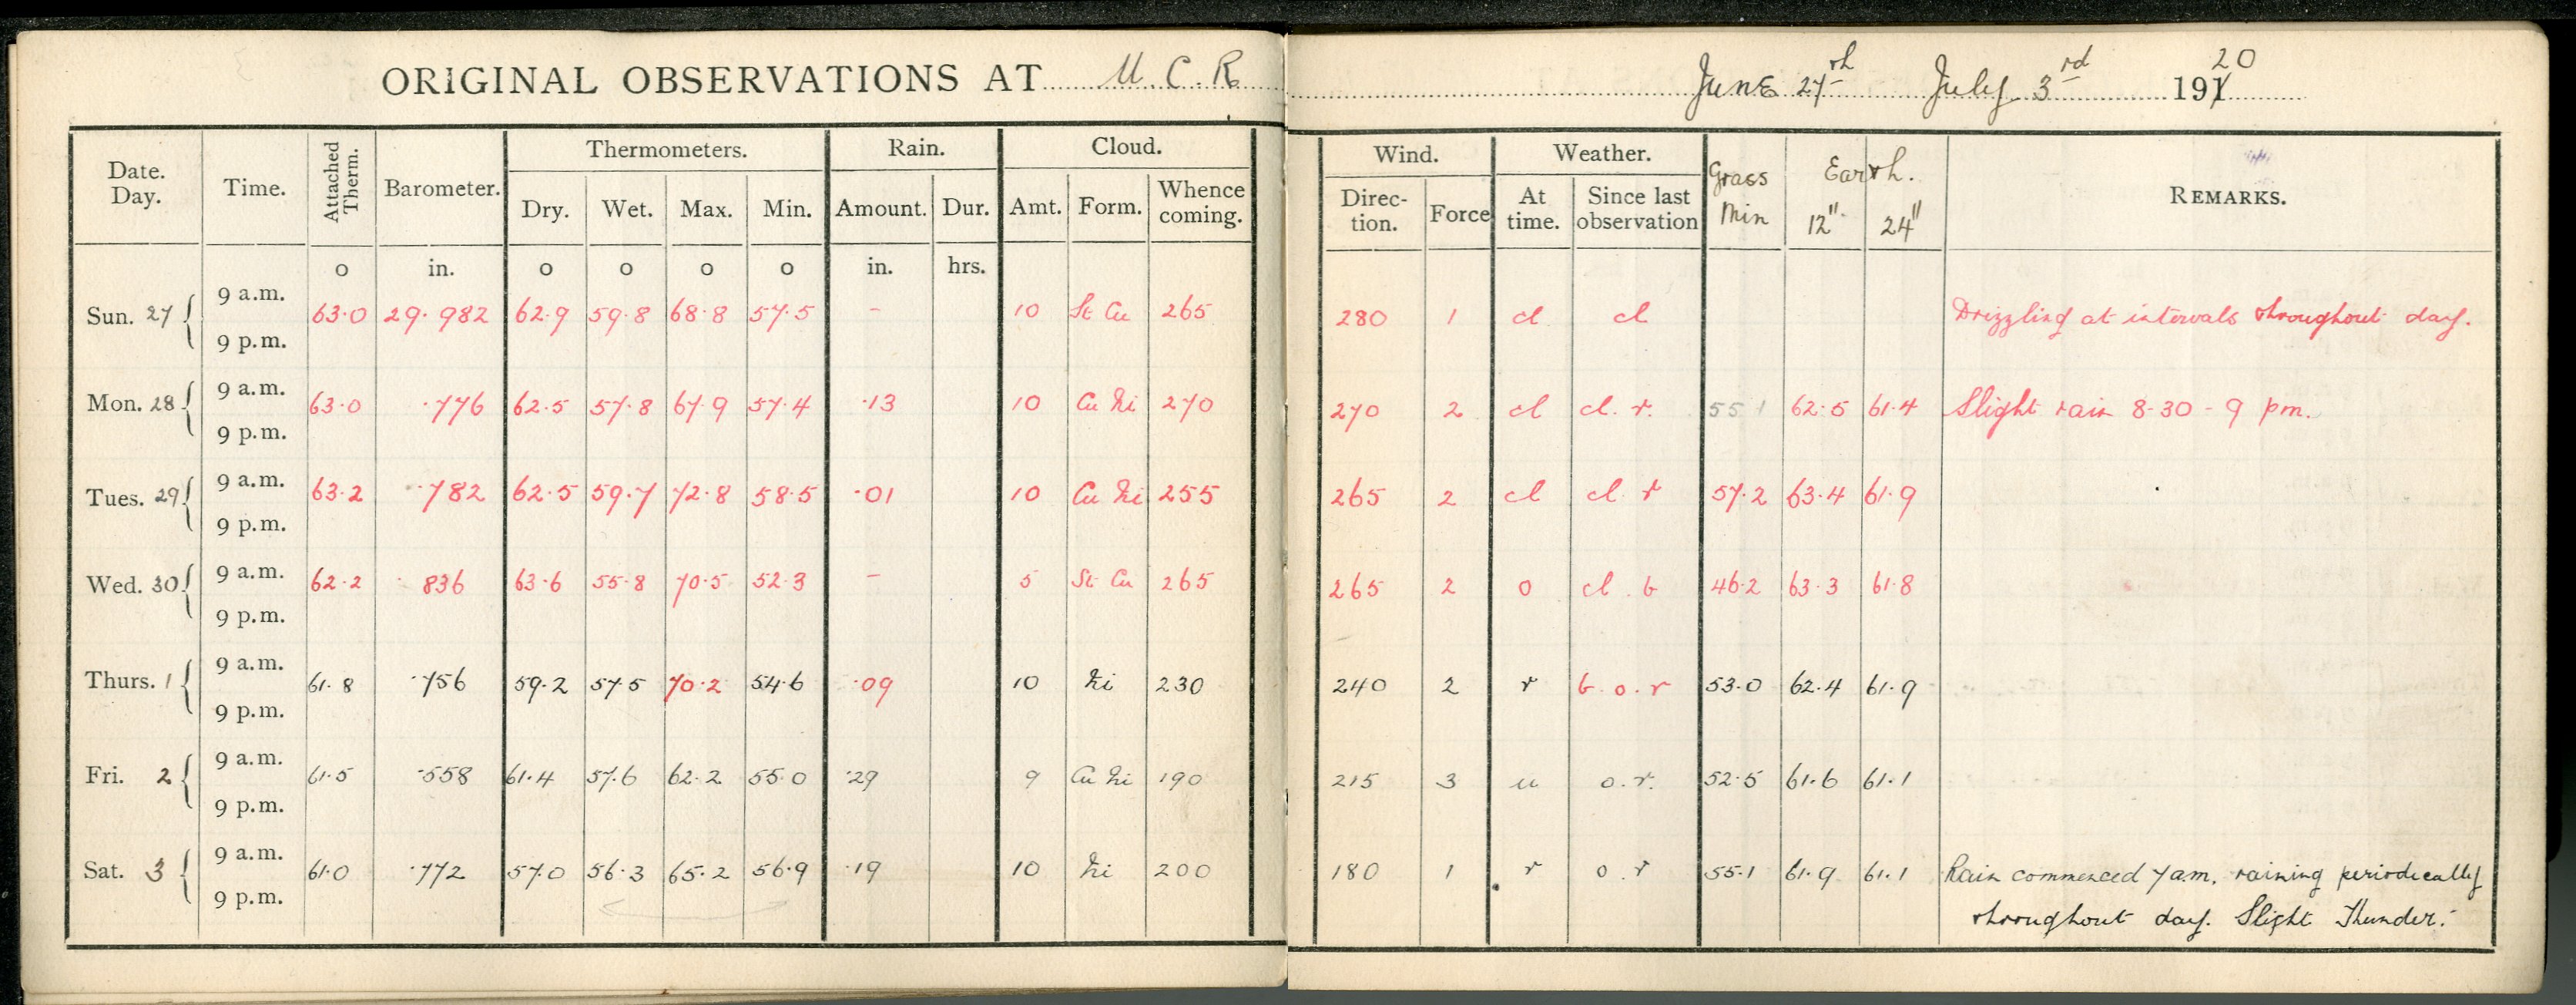 ORIGINAL OBSERVATIONS AT U. C. R. June 27th July 3rd 1920
Date. Day. Time. Attached Therm. Barometer. Thermometers. Rain. Cloud. Wind. Weather. Grass Min Earth. REMARKS.
Dry. Wet. Max. Min. Amount. Dur. Amt. Form. Whence coming. Direc- tion. Force At time. Since last observation 12" 24"
o in. o o o o in. hrs.
Sun. 27 9 a.m. 63.0 29.982 62.9 59.8 68.8 57.5 - 10 St Cu 265 280 1 cl cl Drizzling at intervals throughout day.
9 p.m.
Mon. 28 9 a.m. 63.0 .776 62.5 57.8 67.9 57.4 .13 10 Cu Ni 270 270 2 cl cl. r. 55.1 62.5 61.4 Slight rain 8-30 - 9 pm.
9 p.m.
Tues. 29 9 a.m. 63.2 .782 62.5 59.7 72.8 58.5 .01 10 Cu Ni 255 265 2 cl cl r 57.2 63.4 61.9
9 p.m.
Wed. 30 9 a.m. 62.2 .836 63.6 55.8 70.5 52.3 - 5 St Cu 265 265 2 o cl. b 46.2 63.3 61.8
9 p.m.
Thurs. 1 9 a.m. 61.8 .756 59.2 57.5 70.2 54.6 .09 10 Ni 230 240 2 r b. o. r 53.0 62.4 61.9
9 p.m.
Fri. 2 9 a.m. 61.5 .558 61.4 57.6 62.2 55.0 .29 9 Cu Ni 190 215 3 u o. r. 52.5 61.6 61.1
9 p.m.
Sat. 3 9 a.m. 61.0 .772 57.0 56.3 65.2 56.9 .19 10 Ni 200 180 1 r o. r 55.1 61.9 61.1 Rain commenced 7am, raining periodically
9 p.m. throughout day. Slight Thunder.